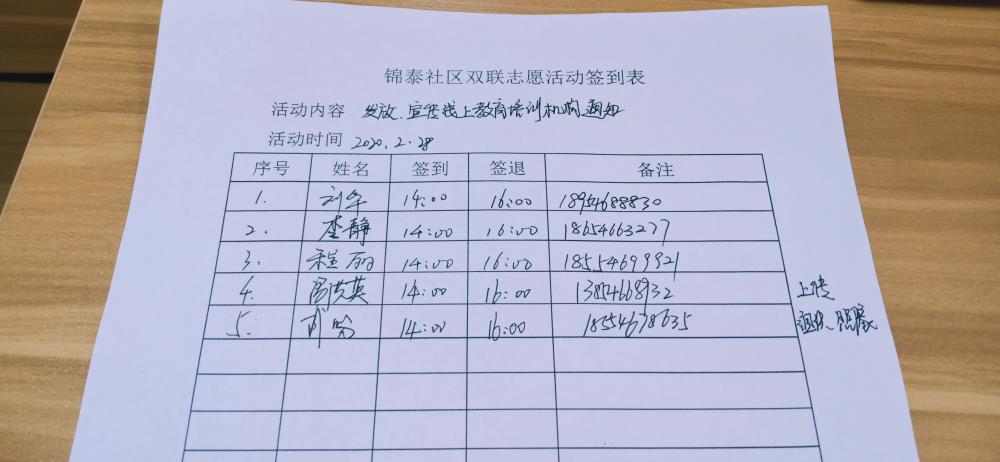 锦泰社区双联志愿活动签到表
活动内容 发放、宣传线上教育培训机构通知
活动时间 2020.2.28
序号 姓名 签到 签退 备注
1. 刘华 14:00 16:00 18954688830
2. 李静 14:00 16:00 18654663277
3. 程丽 14:00 16:00 18554699921
4. 周洪英 14:00 16:00 13854668932
5. 14:00 16:00 18554678635
上传